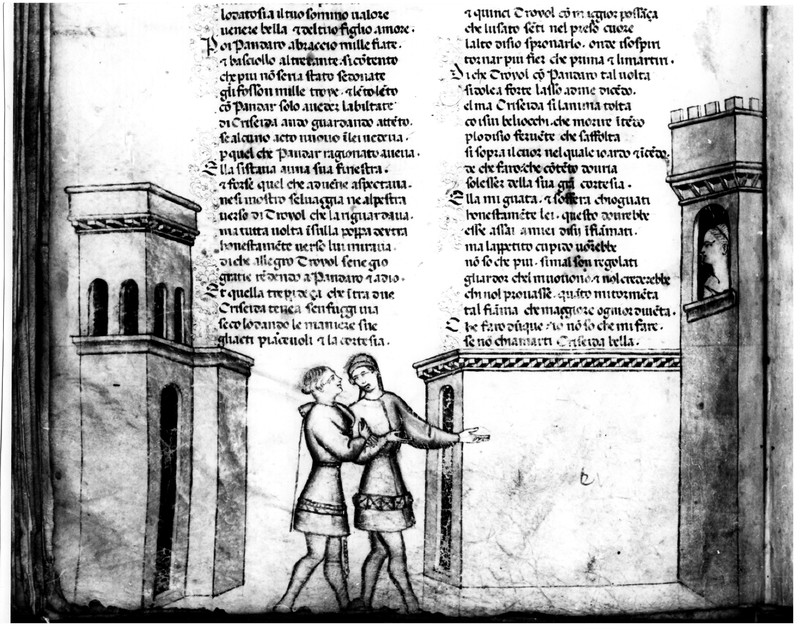 lodato sia il tuo sommo valore
venere bella & del tuo figlio amore.
Poi Pandaro abraccio mille fiate.
& basciollo altretante. si cōtento
che piu nō seria stato se donate
gli fosson mille troye. & lēto lēto
cō Pandar solo a veder la biltate
di Criseida ando guardando attēto.
se alcuno acto nuovo ī lei vedeva.
p quel che Pandar ragionato aveva.
Ella si stava a una sua finestra.
& forse quel che advēne aspectava.
ne si mostro selvaggia ne alpestra
verso di Troyol che la riguardava.
ma tutta volta ī sulla poppa dextra
honestamēte verso lui mirava.
di che allegro Troyol se ne gio
gratie rēdendo a Pandaro & a dio.
Et quella trepideça che ītra due
Criseida teneva sen fuggi via
seco lodando le maniere sue
gliacti piacevoli & la cortesia.
& quinci Troyol cō maggior possāça
che l usato sēti nel preso cuore
l alto disio spronarlo. onde i sospiri
tornar piu fier che prima & li martiri.
Di che Troyol cō Pandaro tal volta
si dolea forte lasso a dme dicēdo.
el ma Criseida si l anima tolta
co i suoi begliocchi. che morire ītēdo
p lo disio fervēte che s affolta
si sopra il cuor nel quale io ardo & īcēdo.
de che faro. che cōtēto dovria
solo esser della sua grā cortesia.
Ella mi guata. & soffera chio guati
honestamēte lei. questo dovrebbe
esse assai a miei disii īfiamati.
ma l appetito cupido vorebbe
nō so che piu. si mal son regolati
gliardor chel muovono. & nol crederebbe
chi nol provasse. quāto mi tormēta
tal fiāma che maggiore ognior diventa.
Che faro dūque. io nō so che mi fare.
se nō chiamarti Criseida bella.